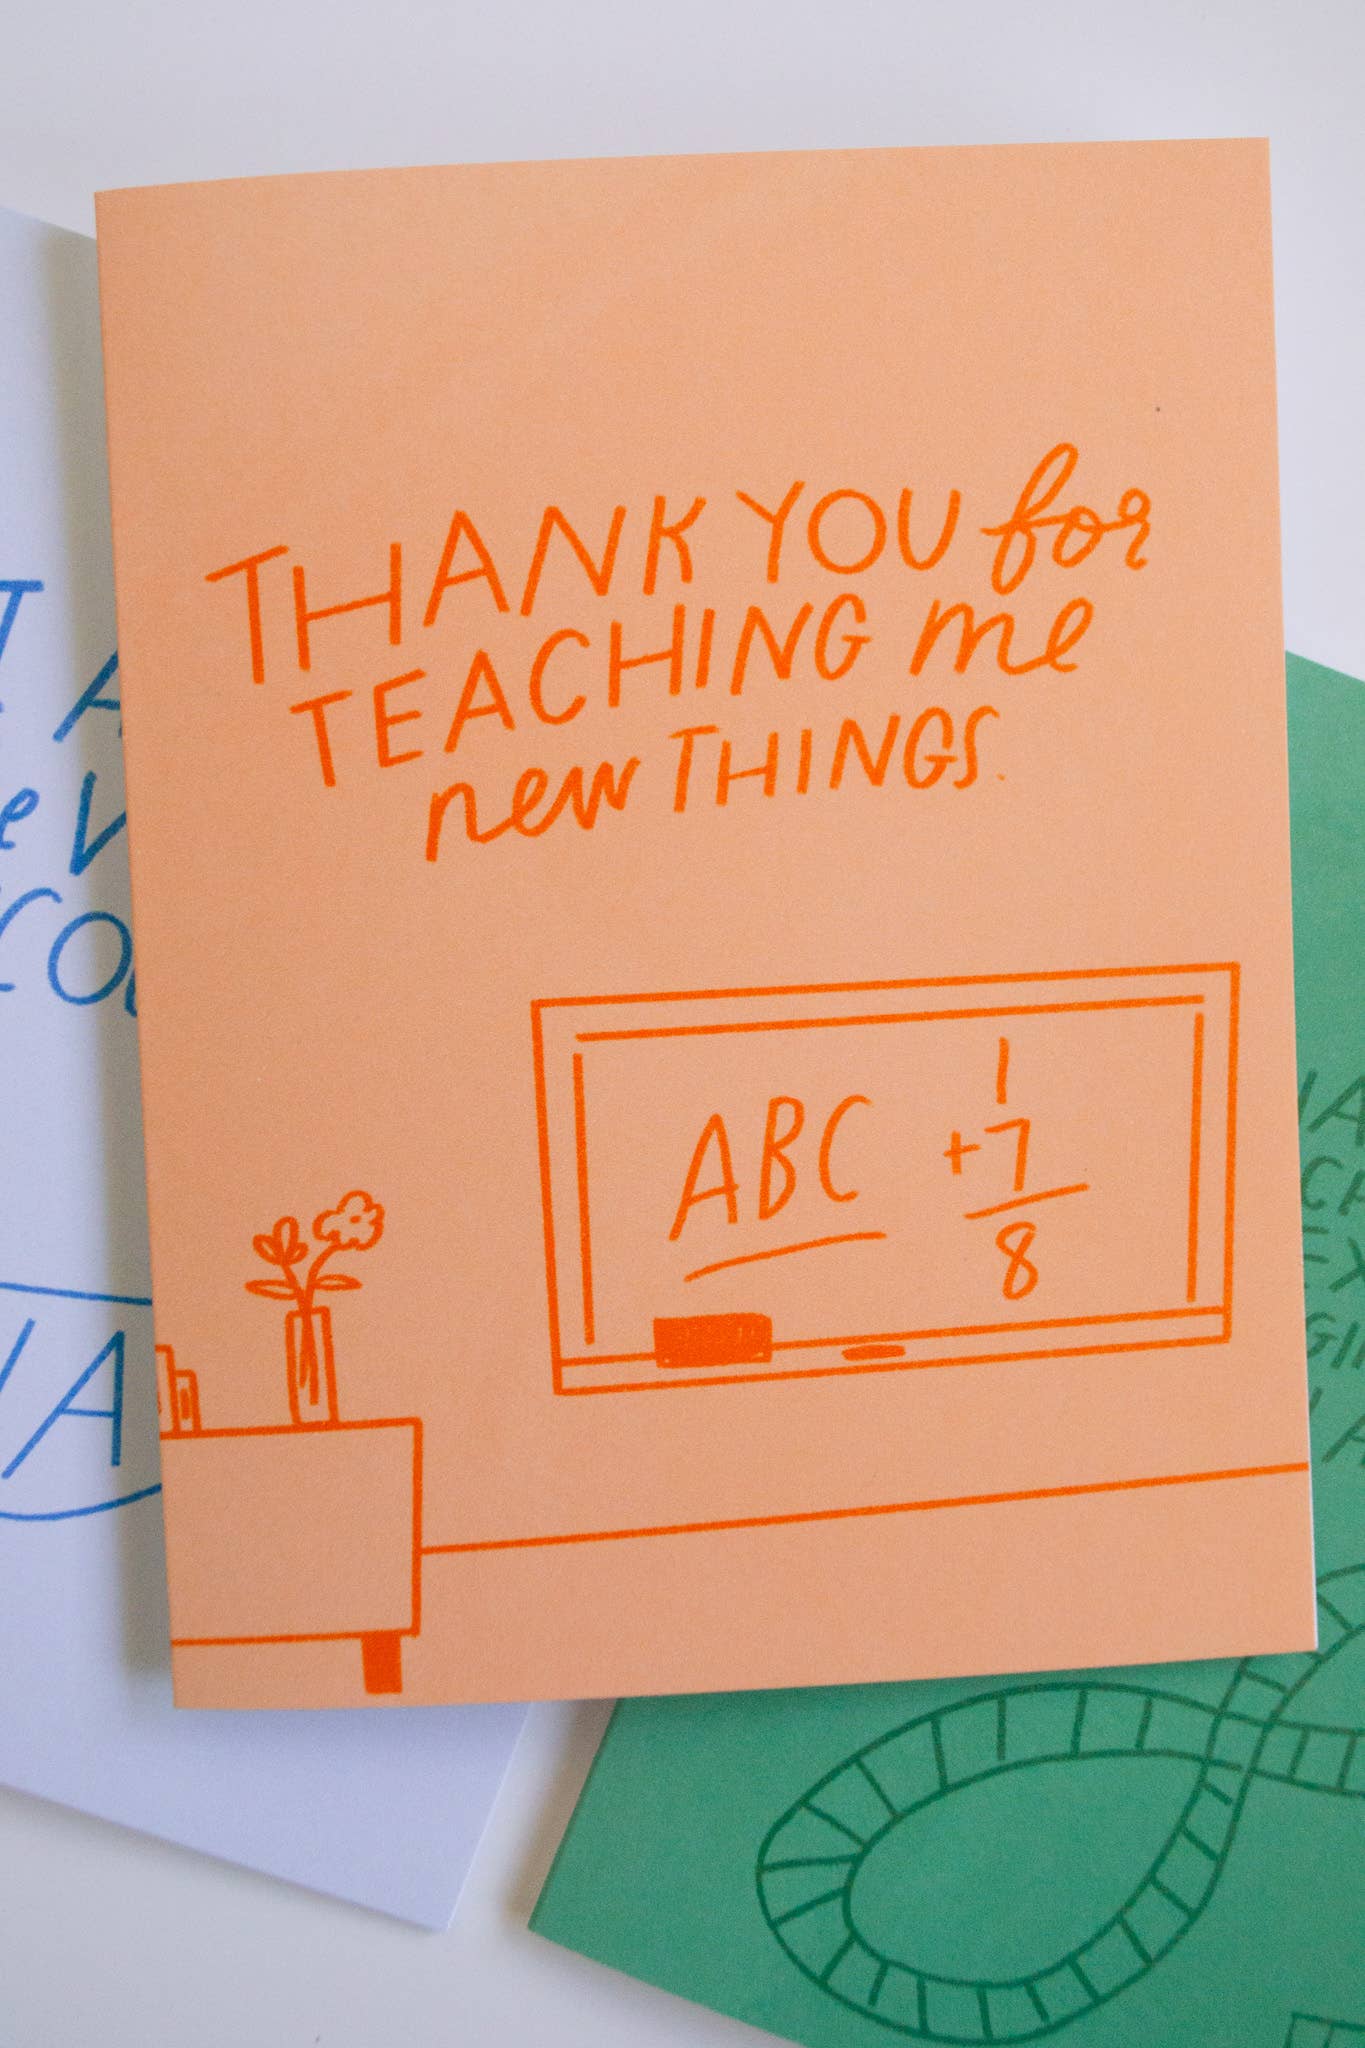 THANK YOU for
TEACHING me
new THINGS.
ABC
1
+7
8